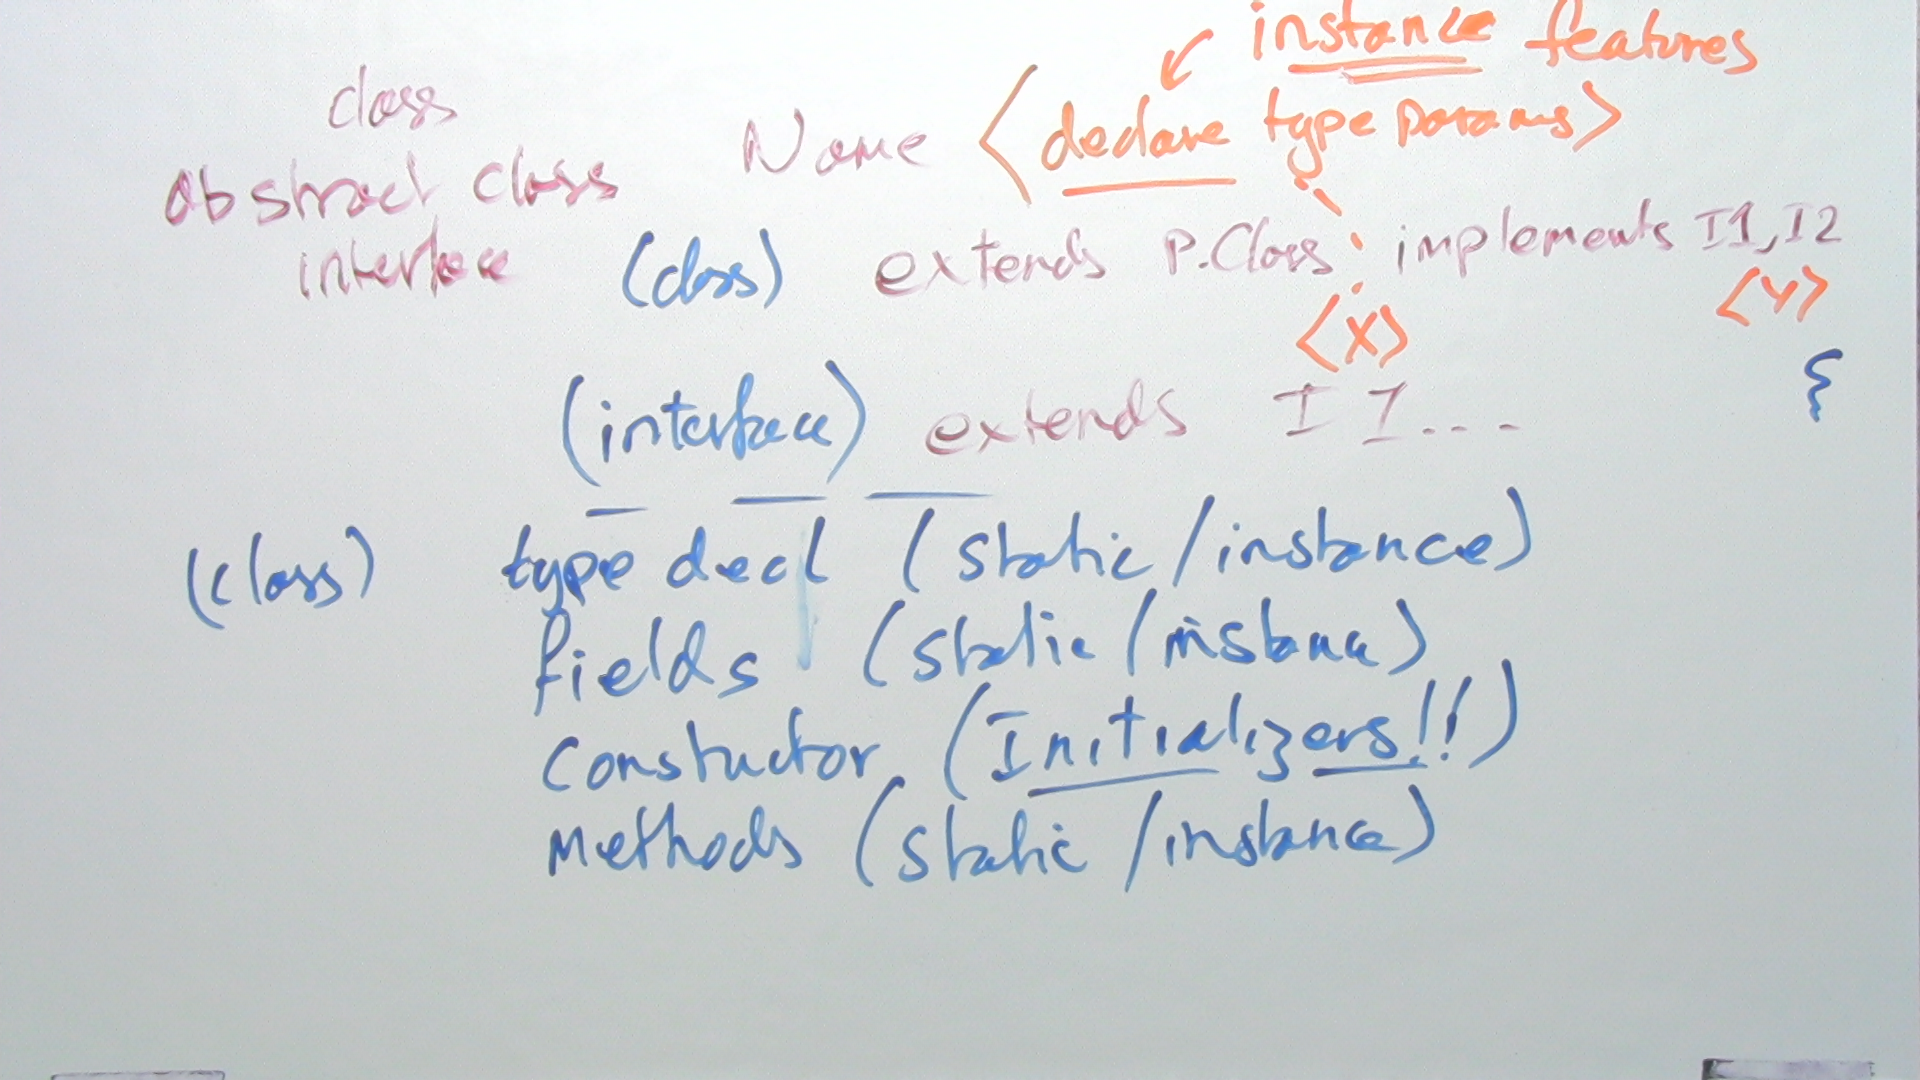 instance features
class
Name <declare type params>
abstract class
interface
(class) extends P.Class implements I1, I2
<X> <Y>
{
(interface) extends I1...
(class) type decl (static/instance)
fields (static/instance)
constuctor (Initializers!!)
Methods (static/instance)